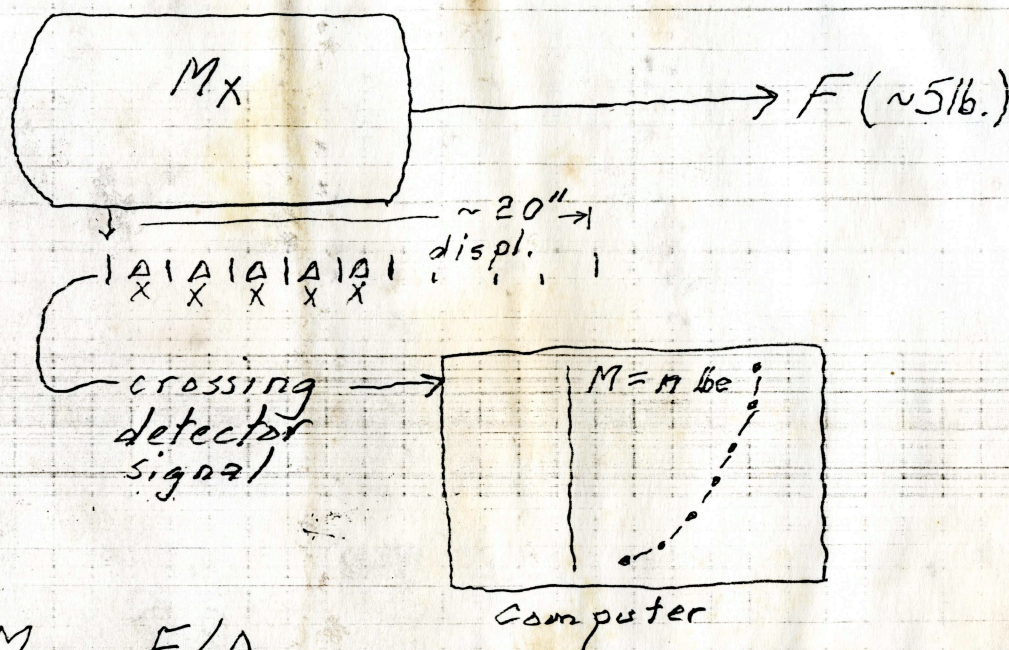 Mx
F (~5lb.)
~ 20"
displ.
| Δ | Δ | Δ | Δ | Δ |
X X X X X
crossing
detector
signal
M = n lbe
computer
M F/A